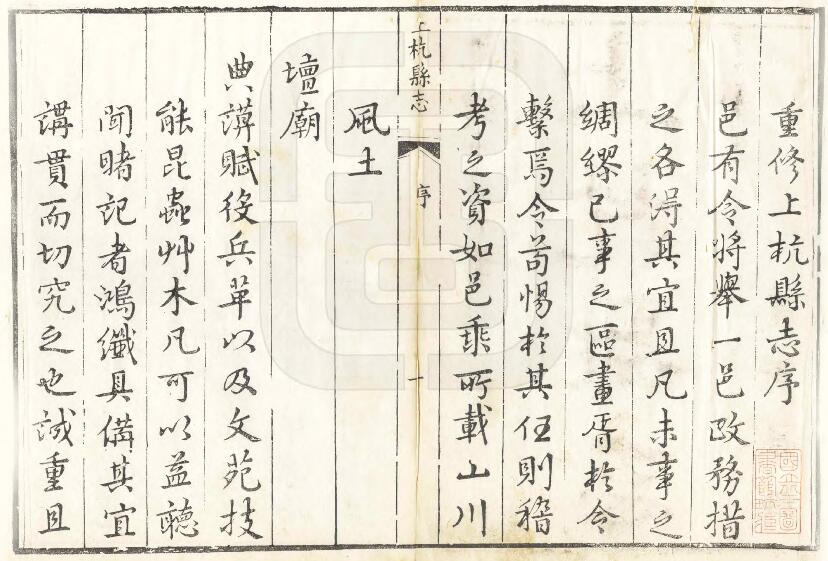 重修上杭縣志序
邑有令將舉一邑政務措
之各得其宜且凡未事之
綢繆已事之區畫胥於令
繫焉令苟惕於其任則稽
考之資如邑乘所載山川
風土
上杭縣志
序
一
壇廟
典謨賦役兵革以及文苑技
能昆蟲艸木凡可以益聽
聞睹記者鴻纖具備其宜
講貫而切究之也誠重且